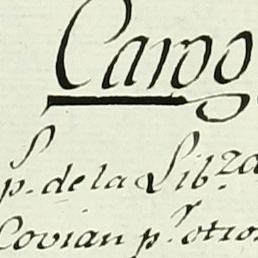 Cargo
p.r de la Lib.za
Covian p.r otro